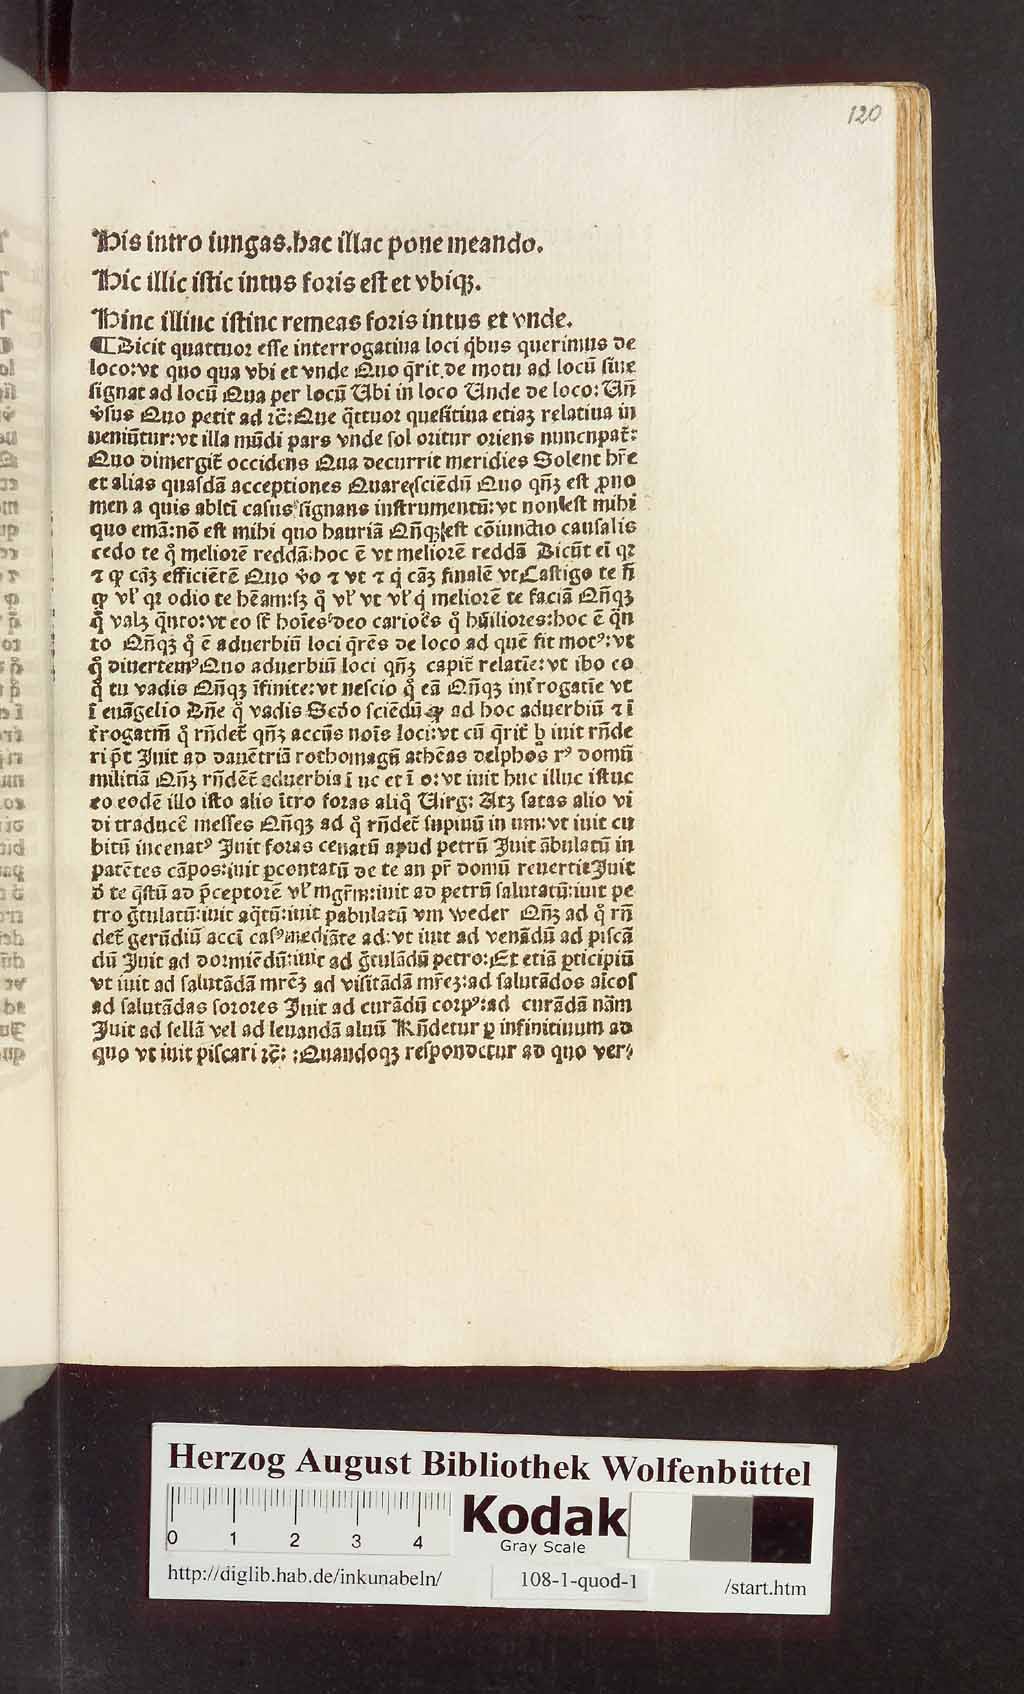 120
His intro iungas.hac illac pone meando.
Hic illic istic intus foris est et vbiqʒ.
Hinc illinc istinc remeas foris intus et vnde.
¶Dicit quattuor esse interrogatiua loci q̄bus querimus de
loco:vt quo qua vbi et vnde Quo q̄rit de motu ad locū siue
signat ad locū Qua per locū Ubi in loco Unde de loco: Un̄
v̓sus Quo petit ad ꝛc̄: Que q̄ttuor quesitiua etiaʒ relatiua in
ueniūtur:vt illa mūdi pars vnde sol oritur oriens nuncupat̄:
Quo dimergit̄ occidens Qua decurrit meridies Solent hr̄e
et alias quasdā acceptiones Quare sciēdū Quo qn̄ʒ est ꝓno
men a quis ablti casus signans instrumentū:vt non est mihi
quo emā:nō est mihi quo hauriā Qn̄qʒ est cōiunctio causalis
cedo te q̊ meliorē reddā:hoc ē vt meliorē reddā Dicūt ei qꝛ
⁊ ꝙ cāʒ efficiētē Quo v̓o ⁊ vt ⁊ q̊ cāʒ finalē vt Castigo te n̄
ꝙ vl̓ qꝛ odio te hēam:sʒ q̊ vl̓ vt vl̓ q̊ meliorē te faciā Qn̄qʒ
q̊ valʒ q̄nto:vt eo st̄ hoīes deo carioēs q̊ hūiliores:hoc ē q̄n
to Qn̄qʒ q̊ ē aduerbiū loci q̄rēs de loco ad quē fit motꝰ:vt
q̊ diuertemꝰ Quo aduerbiū loci qn̄ʒ capit̄ relatīe:vt ibo eo
q̊ tu vadis Qn̄qʒ īfinite:vt nescio q̊ eā Qn̄qʒ int̓rogatīe vt
ī euāgelio Dn̄e q̊ vadis Sc̄do sciēdū ꝙ ad hoc aduerbiū ⁊ ī
t̓rogatīū q̊ rn̄det̄ qn̄ʒ accūs noīs loci:vt cū q̄rit̄ iuit rn̄de
ri p̄t Iuit ad dauētriā rothomagū athēas delphos rꝰ domū
militiā Qn̄ʒ rn̄dēt̄ aduerbia ī uc et ī o:vt iuit huc illuc istuc
eo eodē illo isto alio ītro foras aliq̊ Uirg: Atʒ satas alio vi
di traducē messes Qn̄qʒ ad q̊ rn̄det̄ supinū in um:vt iuit cu
bitū incenatꝰ Iuit foras cenatū apud petrū Iuit ābulatū in
patētes cāpos:iuit ꝑcontatū de te an pr̄ domū reuertit Iuit
te q̄stū ad p̄ceptorē vl̓ mgr̄m:iuit ad petrū salutatū:iuit pe
tro ḡtulatū:iuit aq̄tū:iuit pabulatū vm weder Qn̄ʒ ad q̊ rn̄
det̄ gerūdiū acci casꝰ mediāte ad:vt iuit ad venādū ad piscā
dū Iuit ad dormiēdū:iuit ad ḡtulādū petro: Et etiā ꝑticipiū
vt iuit ad salutādā mr̄eʒ ad visitādā mr̄eʒ:ad salutādos alcos
ad salutādas sorores Iuit ad curādū corpꝰ:ad curādā nām
Iuit ad sellā vel ad leuandā aluū Rn̄detur ꝑ infinitiuum ad
quo vt iuit piscari ꝛc̄: :Quandoqʒ respondetur ad quo ver⸗
Herzog August Bibliothek Wolfenbüttel
0 1 2 3 4
Kodak
Gray Scale
http://diglib.hab.de/inkunabeln/ 108-1-quod-1 /start.htm